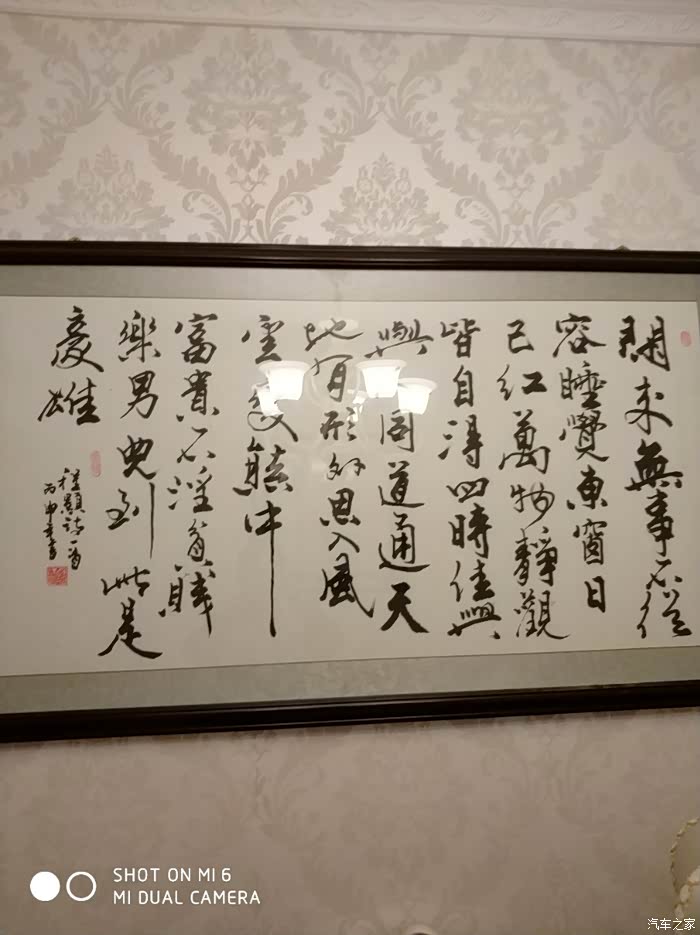 閒来無事不從
容睡覺東窗日
已紅萬物靜觀
皆自得四時佳興
與同道通天
地有形外思入風
雲變態中
富貴不淫貧賤
樂男兒到此是
豪雄
程顥詩一首
丙申書
SHOT ON MI 6
MI DUAL CAMERA
汽车之家